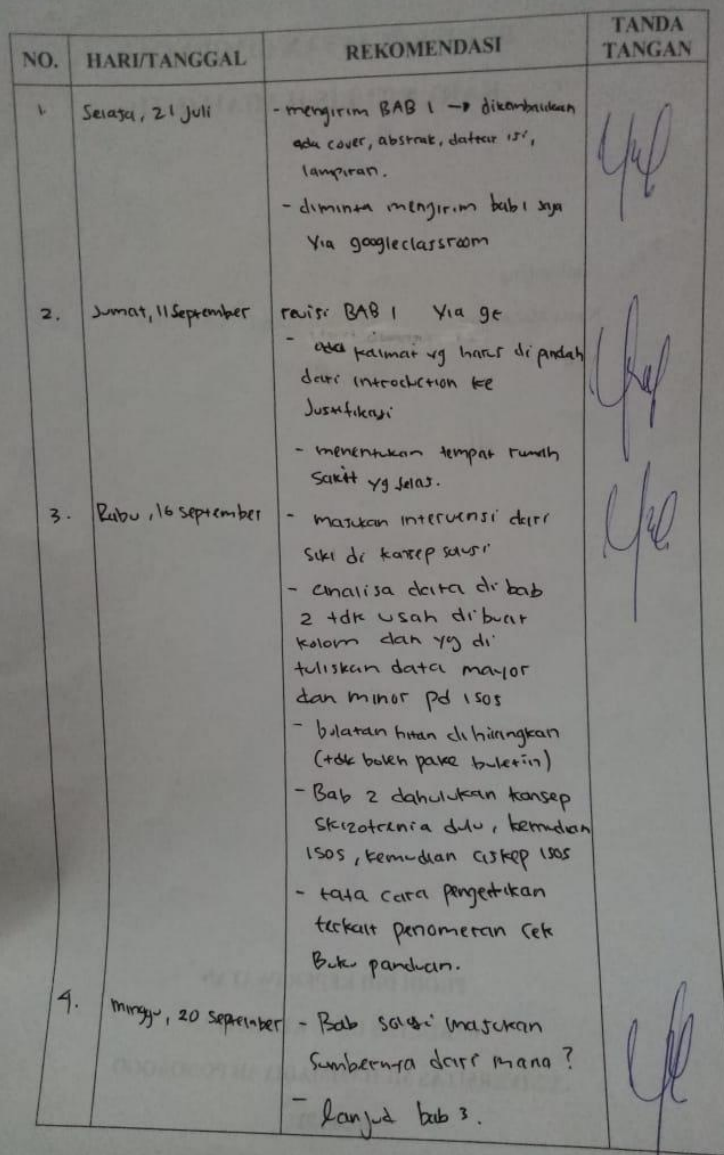 NO. HARI/TANGGAL REKOMENDASI TANDA TANGAN
1 Selasa, 21 Juli - mengirim BAB 1 → dikembalikan
ada cover, abstrak, daftar isi,
lampiran.
- diminta mengirim bab 1 saja
Via googleclassroom
2. Jumat, 11 September revisi BAB 1 Via gc
- ada kalimat yg harus di pindah
dari introduction ke
Justifikasi
- menentukan tempat rumah
sakit yg jelas.
3. Rabu, 16 September - masukan intervensi dari
siki di konsep solusi
- analisa data di bab
2 tdk usah dibuat
kolom dan yg di
tuliskan data mayor
dan minor pd isos
- bulatan hitam di hilangkan
(tdk boleh pake buletin)
- Bab 2 dahulukan konsep
skizofrenia dulu, kemudian
isos, kemudian askep isos
- tata cara pengetikan
terkait penomeran cek
Buku panduan.
4. minggu, 20 September - Bab solusi masukan
Sumbernya dari mana?
- lanjud bab 3.